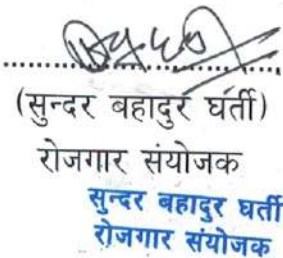 (सुन्दर बहादुर घर्ती)
रोजगार संयोजक
सुन्दर बहादुर घर्ती
रोजगार संयोजक